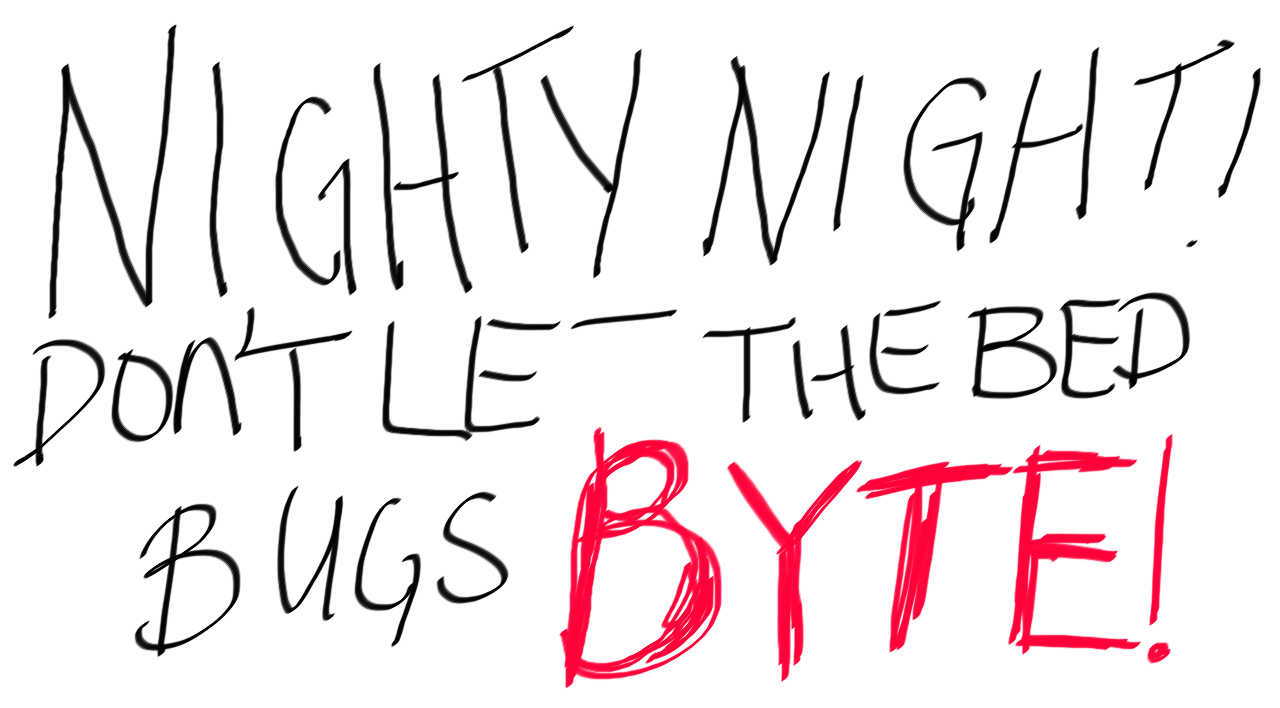 NIGHTY NIGHT!
DON'T LET THE BED
BUGS BYTE!